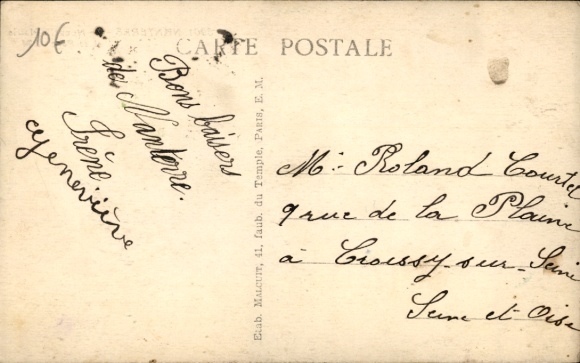 10€
CARTE POSTALE
Bons baisers
de Nanterre.
Irène
Geneviève
Etab. MALCUIT, 41, faub. du Temple, PARIS, E. M.
Mr. Roland Courtel
9 rue de la Plaine
à Croissy-sur-Seine
Seine-et-Oise